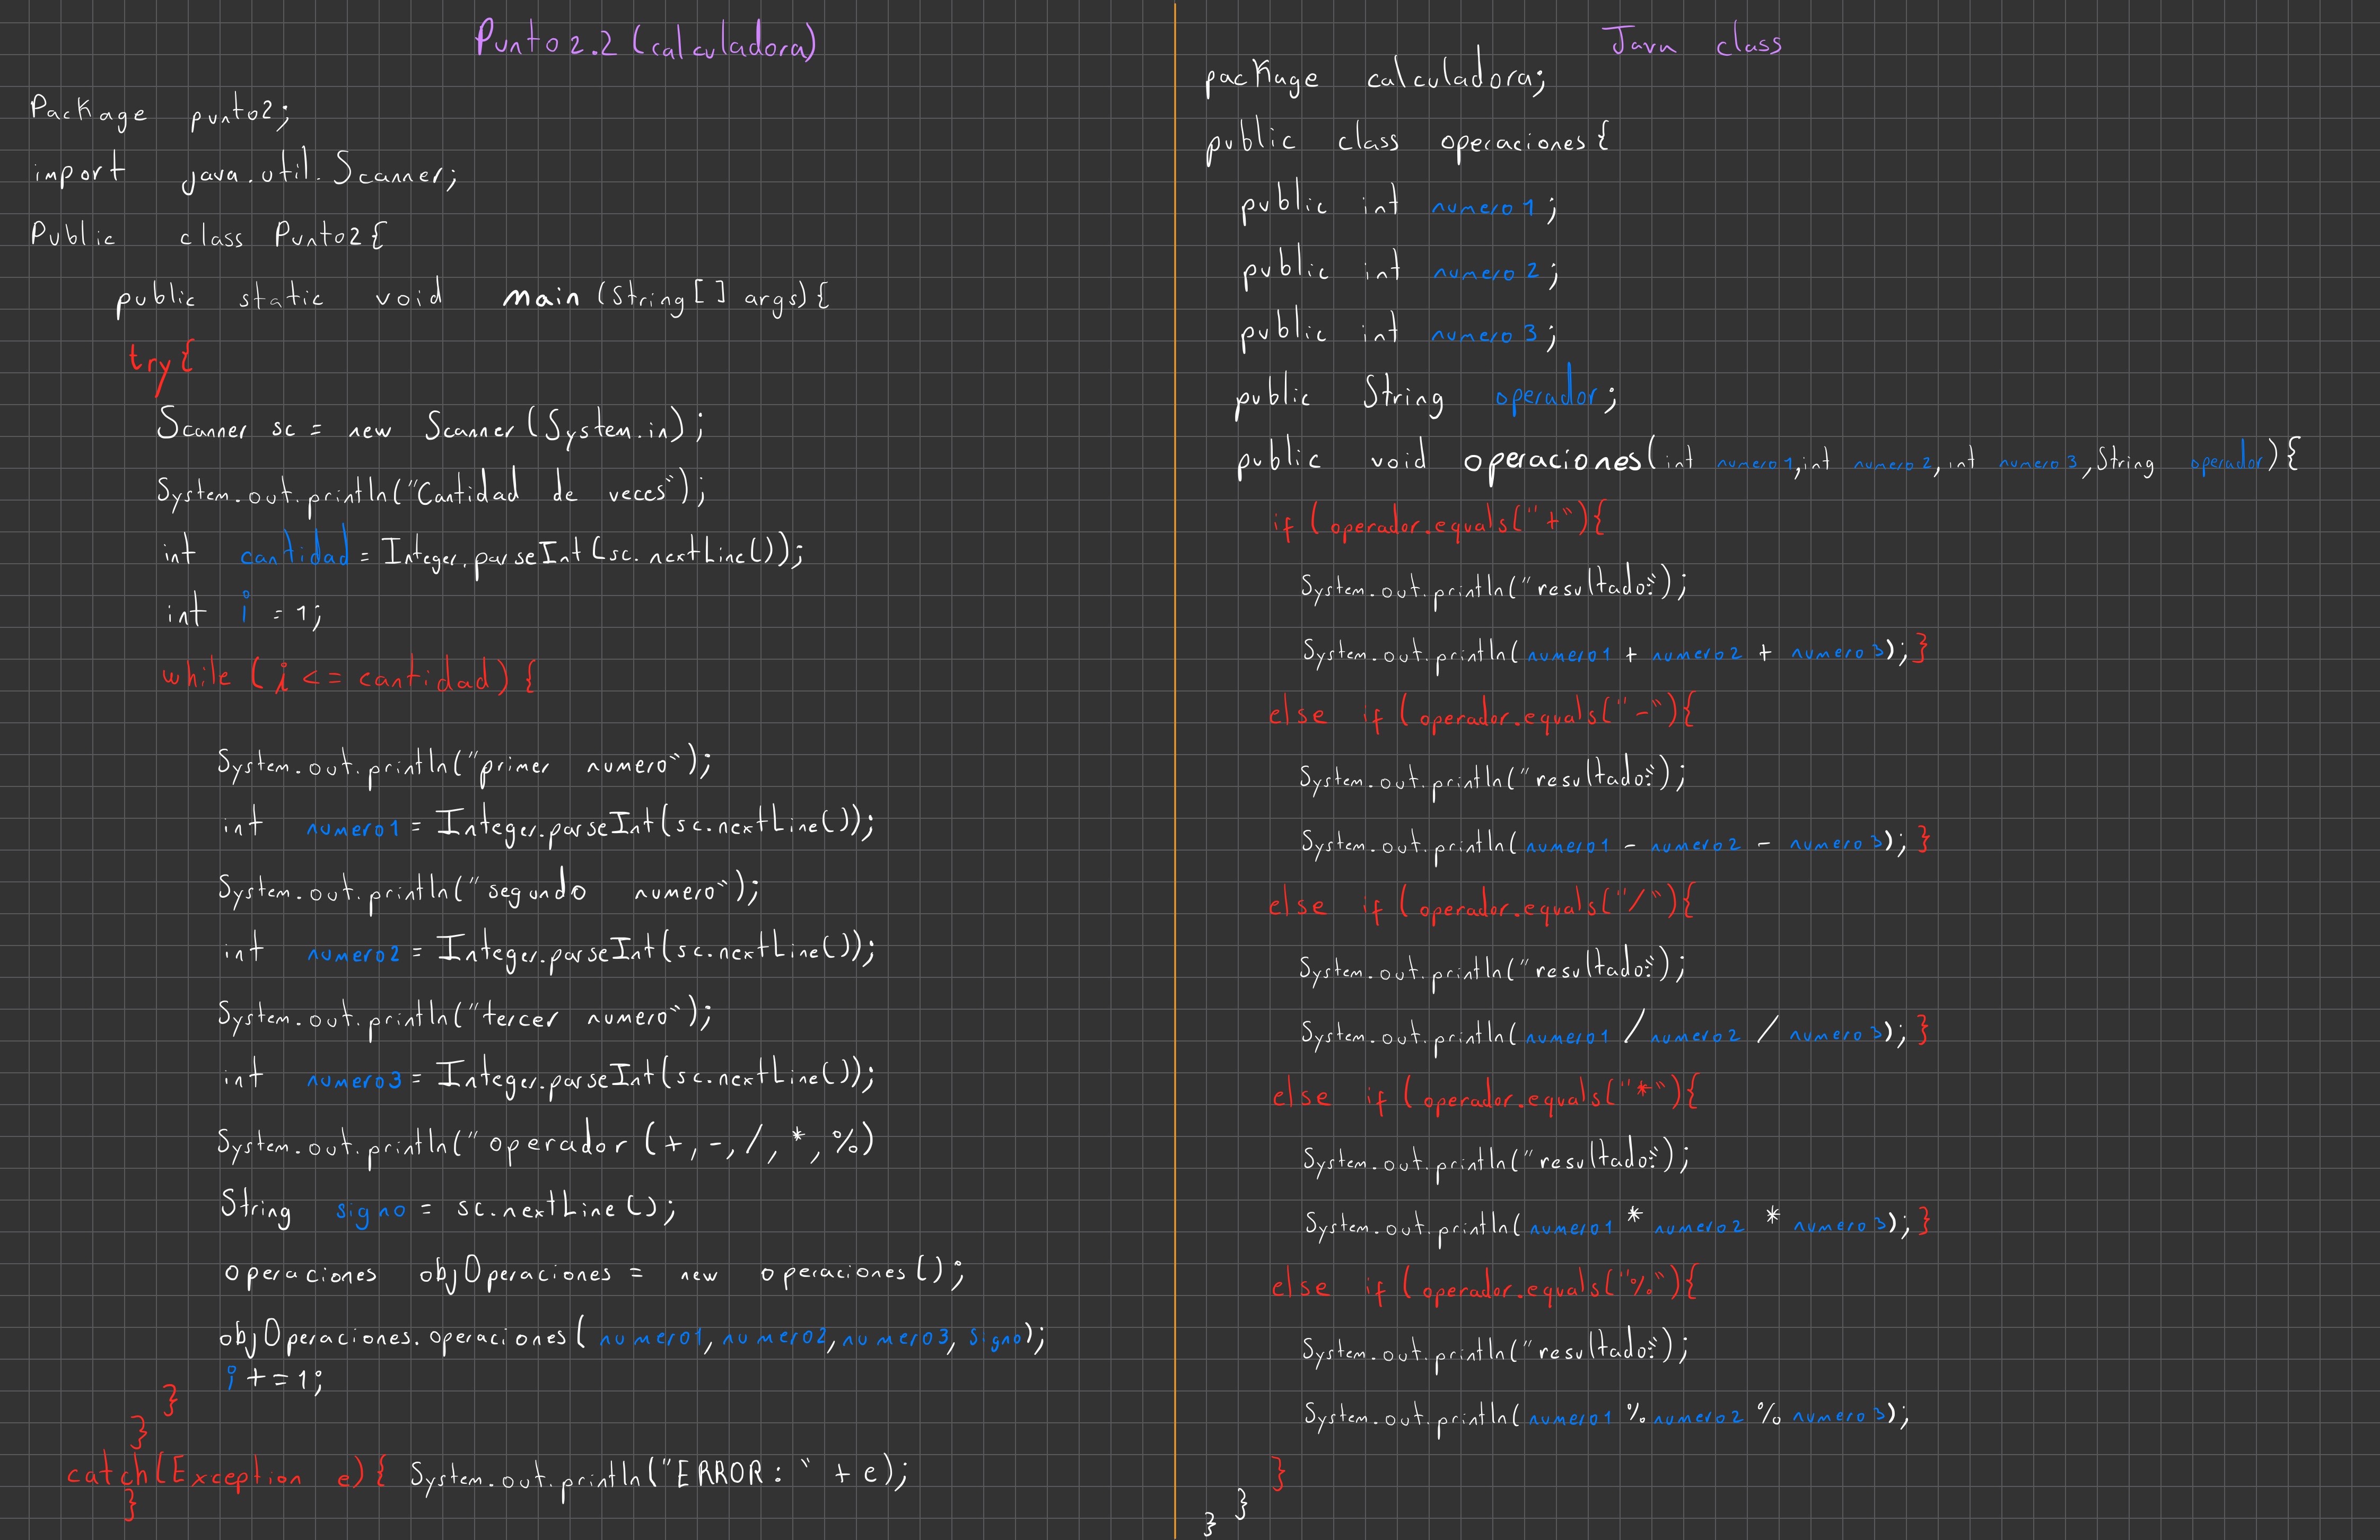 Punto2.2 (calculadora)
Package punto2;
import java.util.Scanner;
Public class Punto2{
public static void main (String[] args){
try{
Scanner sc = new Scanner (System.in);
System.out.println("Cantidad de veces");
int cantidad = Integer.parseInt(sc.nextLine());
int i = 1;
while (i <= cantidad) {
System.out.println("primer numero");
int numero1 = Integer.parseInt(sc.nextLine());
System.out.println("segundo numero");
int numero2 = Integer.parseInt(sc.nextLine());
System.out.println("tercer numero");
int numero3 = Integer.parseInt(sc.nextLine());
System.out.println("operador (+,-,/,*,%)
String signo = sc.nextLine();
operaciones objOperaciones = new operaciones();
objOperaciones.operaciones( numero1, numero2, numero3, signo);
i += 1;
}
}
catch(Exception e){ System.out.println("ERROR: " + e);
}
Java class
package calculadora;
public class operaciones{
public int numero1;
public int numero2;
public int numero3;
public String operador;
public void operaciones(int numero1,int numero2,int numero3,String operador){
if (operador.equals("+"){
System.out.println("resultado:");
System.out.println(numero1 + numero2 + numero3);}
else if (operador.equals("-"){
System.out.println("resultado:");
System.out.println(numero1 - numero2 - numero3);}
else if (operador.equals("/"){
System.out.println("resultado:");
System.out.println(numero1 / numero2 / numero3);}
else if (operador.equals("*"){
System.out.println("resultado:");
System.out.println(numero1 * numero2 * numero3);}
else if (operador.equals("%"){
System.out.println("resultado:");
System.out.println(numero1 % numero2 % numero3);
}
}
}